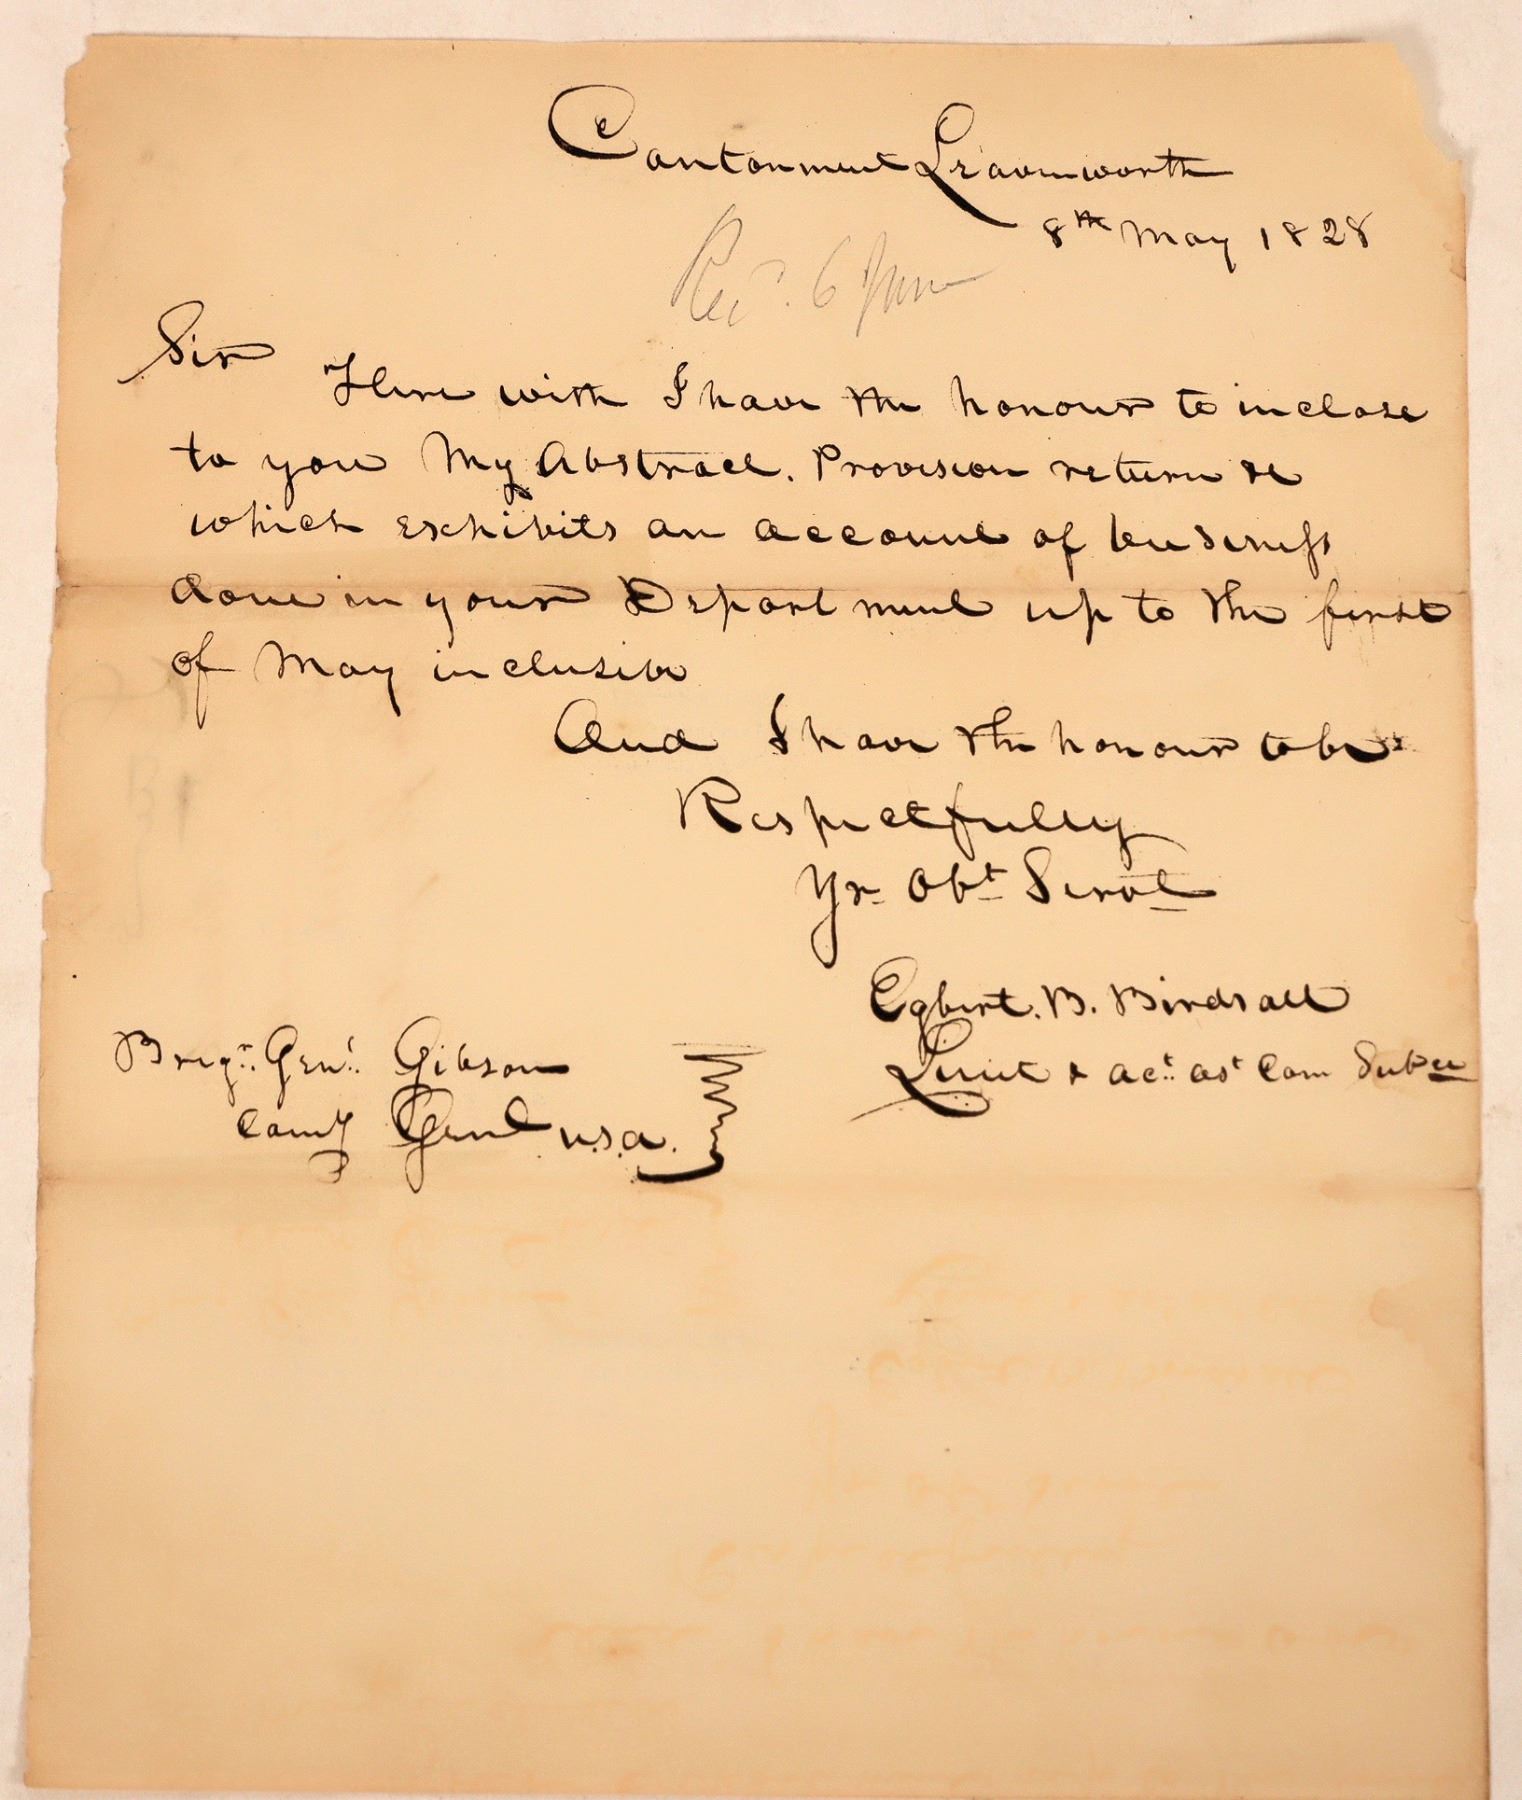 Cantonment Leavenworth
8th May 1828
Recd. 6 June
Sir
Here with I have the honour to inclose
to you My Abstract. Provision return &c
which exhibits an account of business
done in your Department up to the first
of May inclusive
And I have the honour to be
Respectfully
Yr Obt Servt
Egbert. B. Birdsall
Lieut & act. ast Com Subce
Brigr. Genl. Gibson
Comy Genl U.S.A.